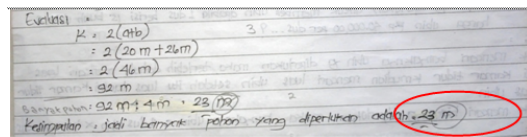 Evaluasi :
K = 2(a+b)
= 2(20 m + 26 m)
= 2(46 m)
= 92 m
Banyak pohon = 92 m : 4 m = 23 m
Kesimpulan : jadi banyak pohon yang diperlukan adalah = 23 m